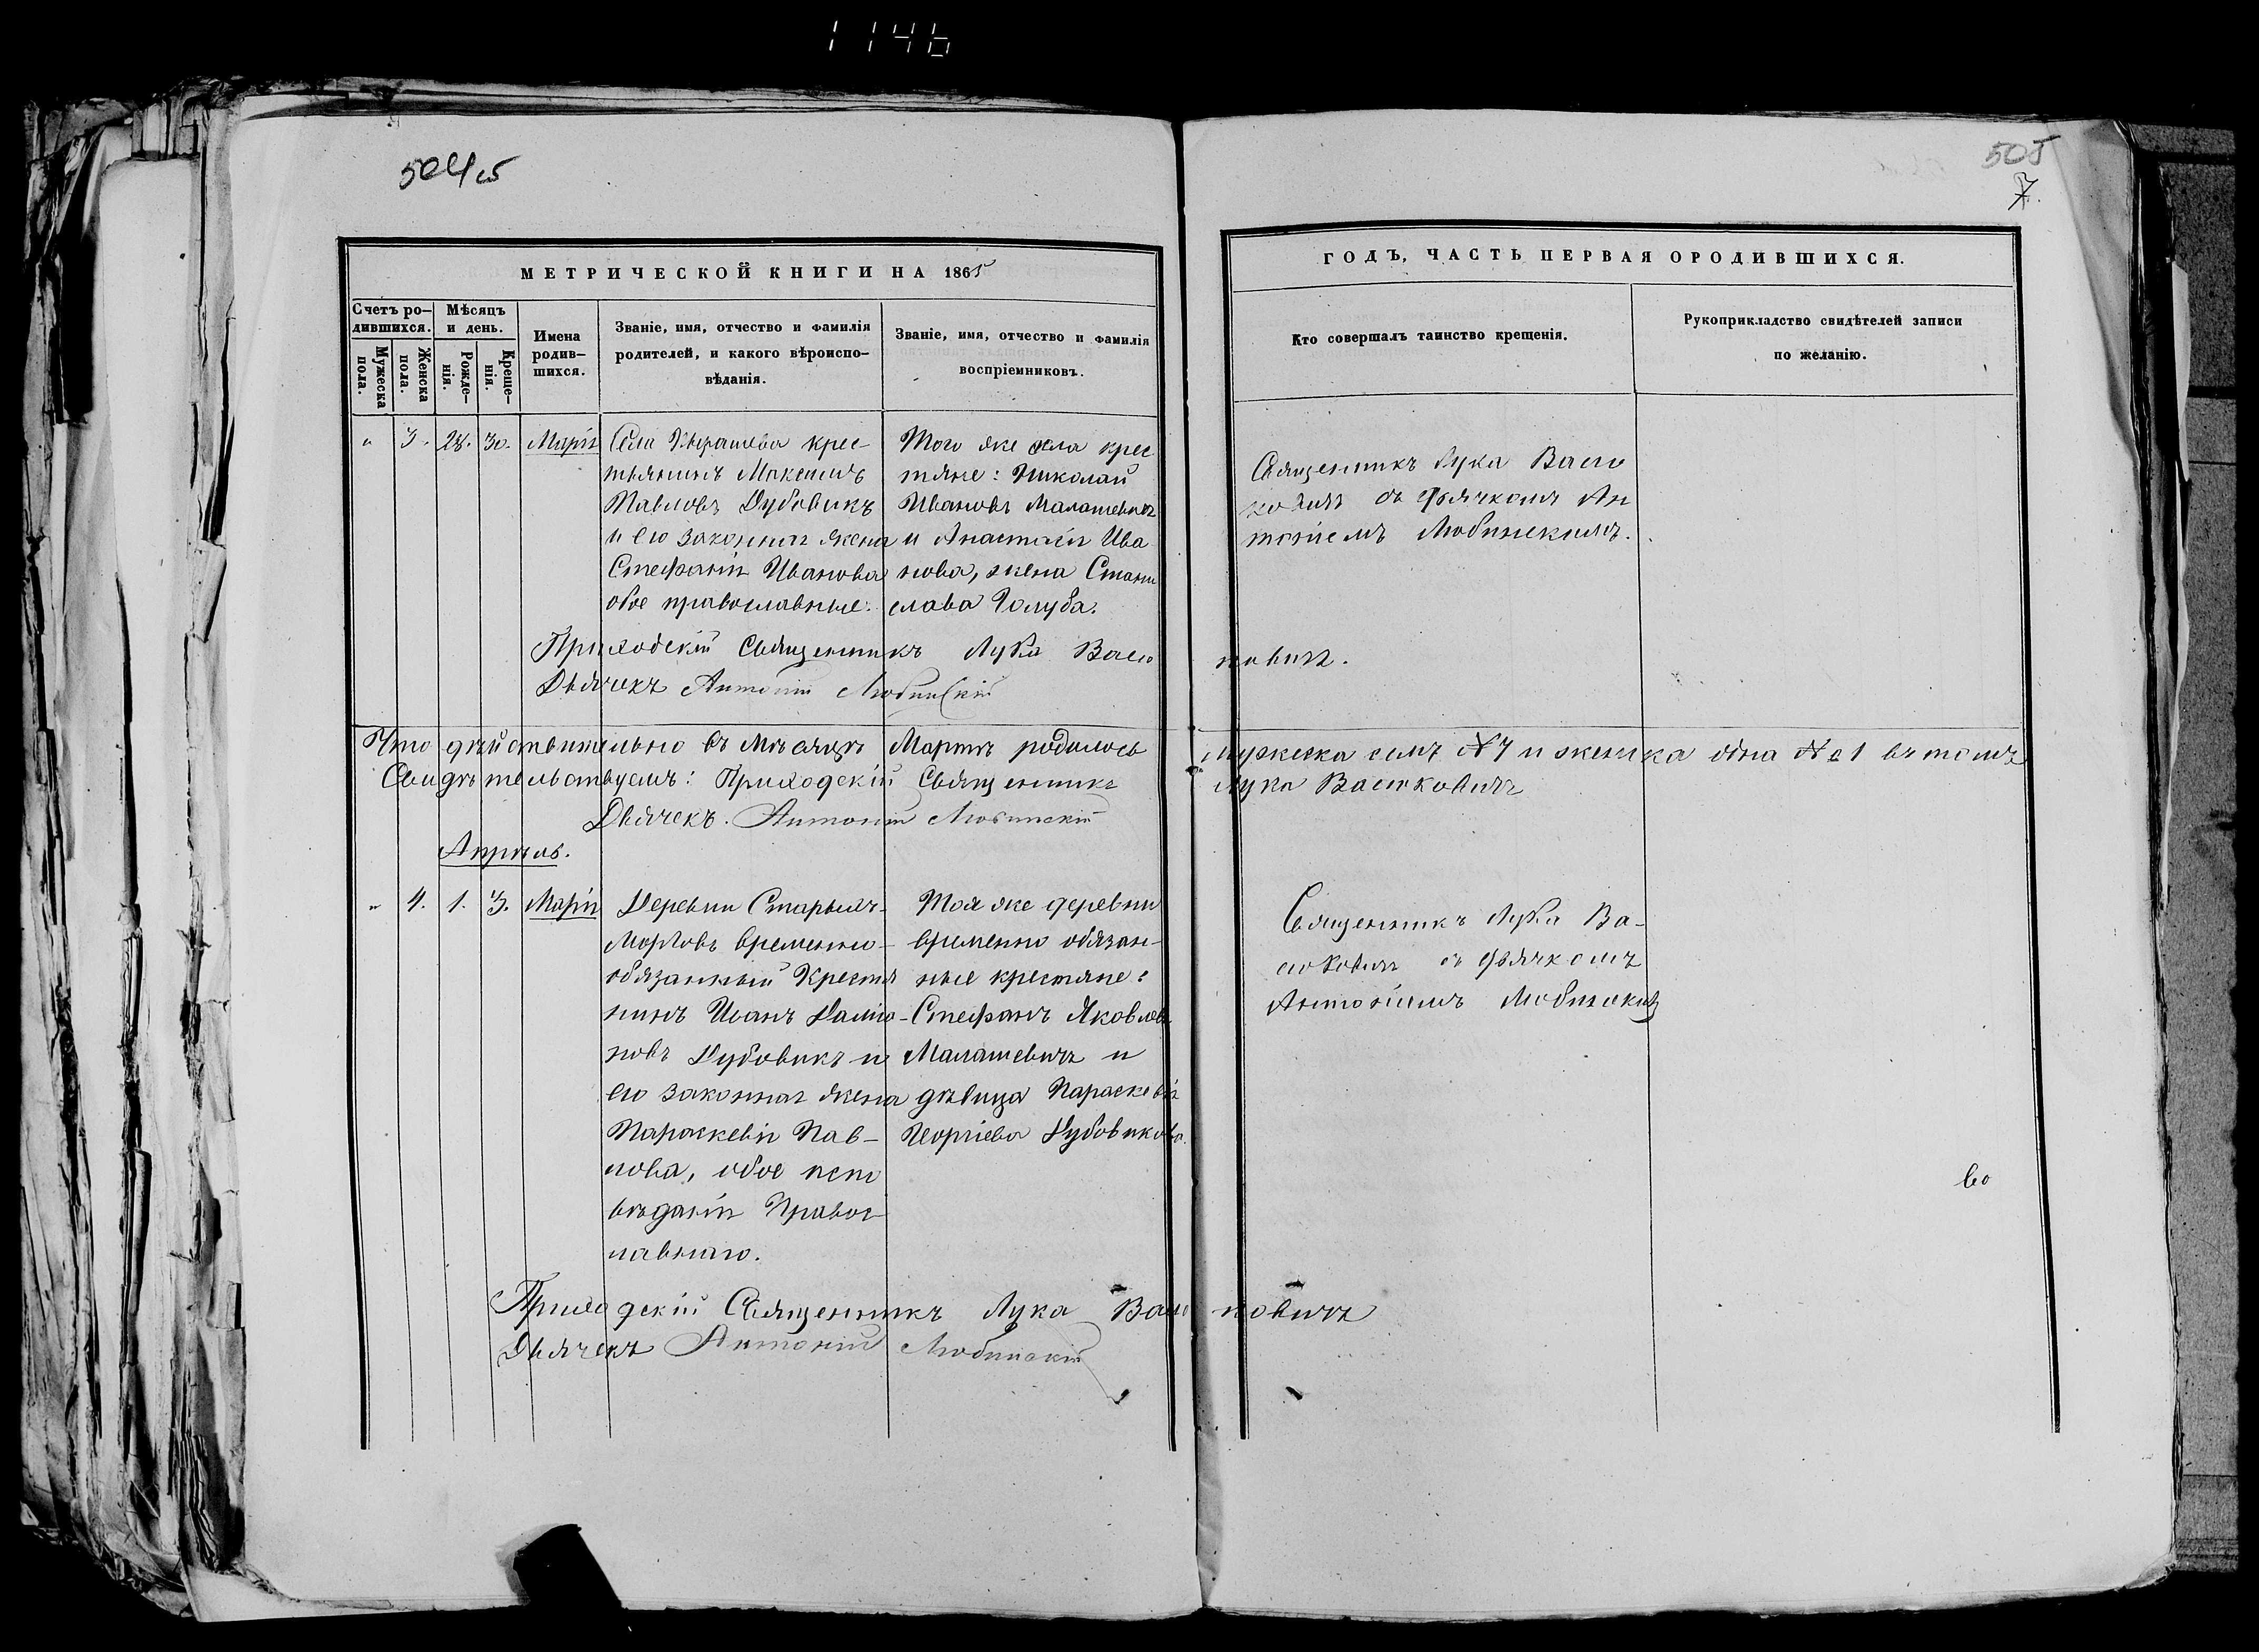 1146
505
7.
МЕТРИЧЕСКОЙ КНИГИ НА 1865
ГОДЪ, ЧАСТЬ ПЕРВАЯ ОРОДИВШИХСЯ.
Счетъ ро-
дившихся.
Мужеска
пола.
Женска
пола.
Мѣсяцъ
и день.
Рожде-
нія.
Креще-
нія.
Имена
родив-
шихся.
Званіе, имя, отчество и фамилія
родителей, и какого вѣроиспо-
вѣданія.
Званіе, имя, отчество и фамилія
воспріемниковъ.
Кто совершалъ таинство крещенія.
Рукоприкладство свидѣтелей записи
по желанію.
" 3. 28. 30. Марія
Села крес-
тьянинъ Максимъ
Павловъ Дубовикъ
и его законная жена
Стефанія Иванова
обое православные.
Того же села крес
тяне: Николай
Ивановъ Малашевичъ
и Анастасія Ива
нова, жена Стани
слава Голуба.
Священникъ Лука Васю
ковичъ съ дьячкомъ Ан
тоніемъ Любинскимъ.
Приходскій Священникъ Лука Васю ковичъ.
Дьячекъ Антоній Любинскій
Что дѣйствительно въ мѣсяцѣ Мартѣ родилось мужеска семь № 7 и женска одна № 1 въ томъ
Свидѣтельствуемъ: Приходскій Священникъ Лука Васюковичъ
Дьячекъ. Антоній Любинскій
Апрѣль.
" 4. 1. 3. Марія
Деревни Старыхъ-
Морговъ временно-
обязанный Крестя
нинъ Иванъ
новъ Дубовикъ и
его законная жена
Параскевія Пав-
лова, обое испо
вѣданія Правос-
лавнаго.
Тоя же деревни
временно обязан-
ные крестяне:
Стефанъ Яковлевъ
Малашевичъ и
дѣвица Параскевія
Георгіева Дубовикова.
Священникъ Лука Ва-
сюковичъ съ дьячкомъ
Антоніемъ Любинскимъ
во
Приходскій Священникъ Лука Васю ковичъ
Дьячекъ Антоній Любинскій